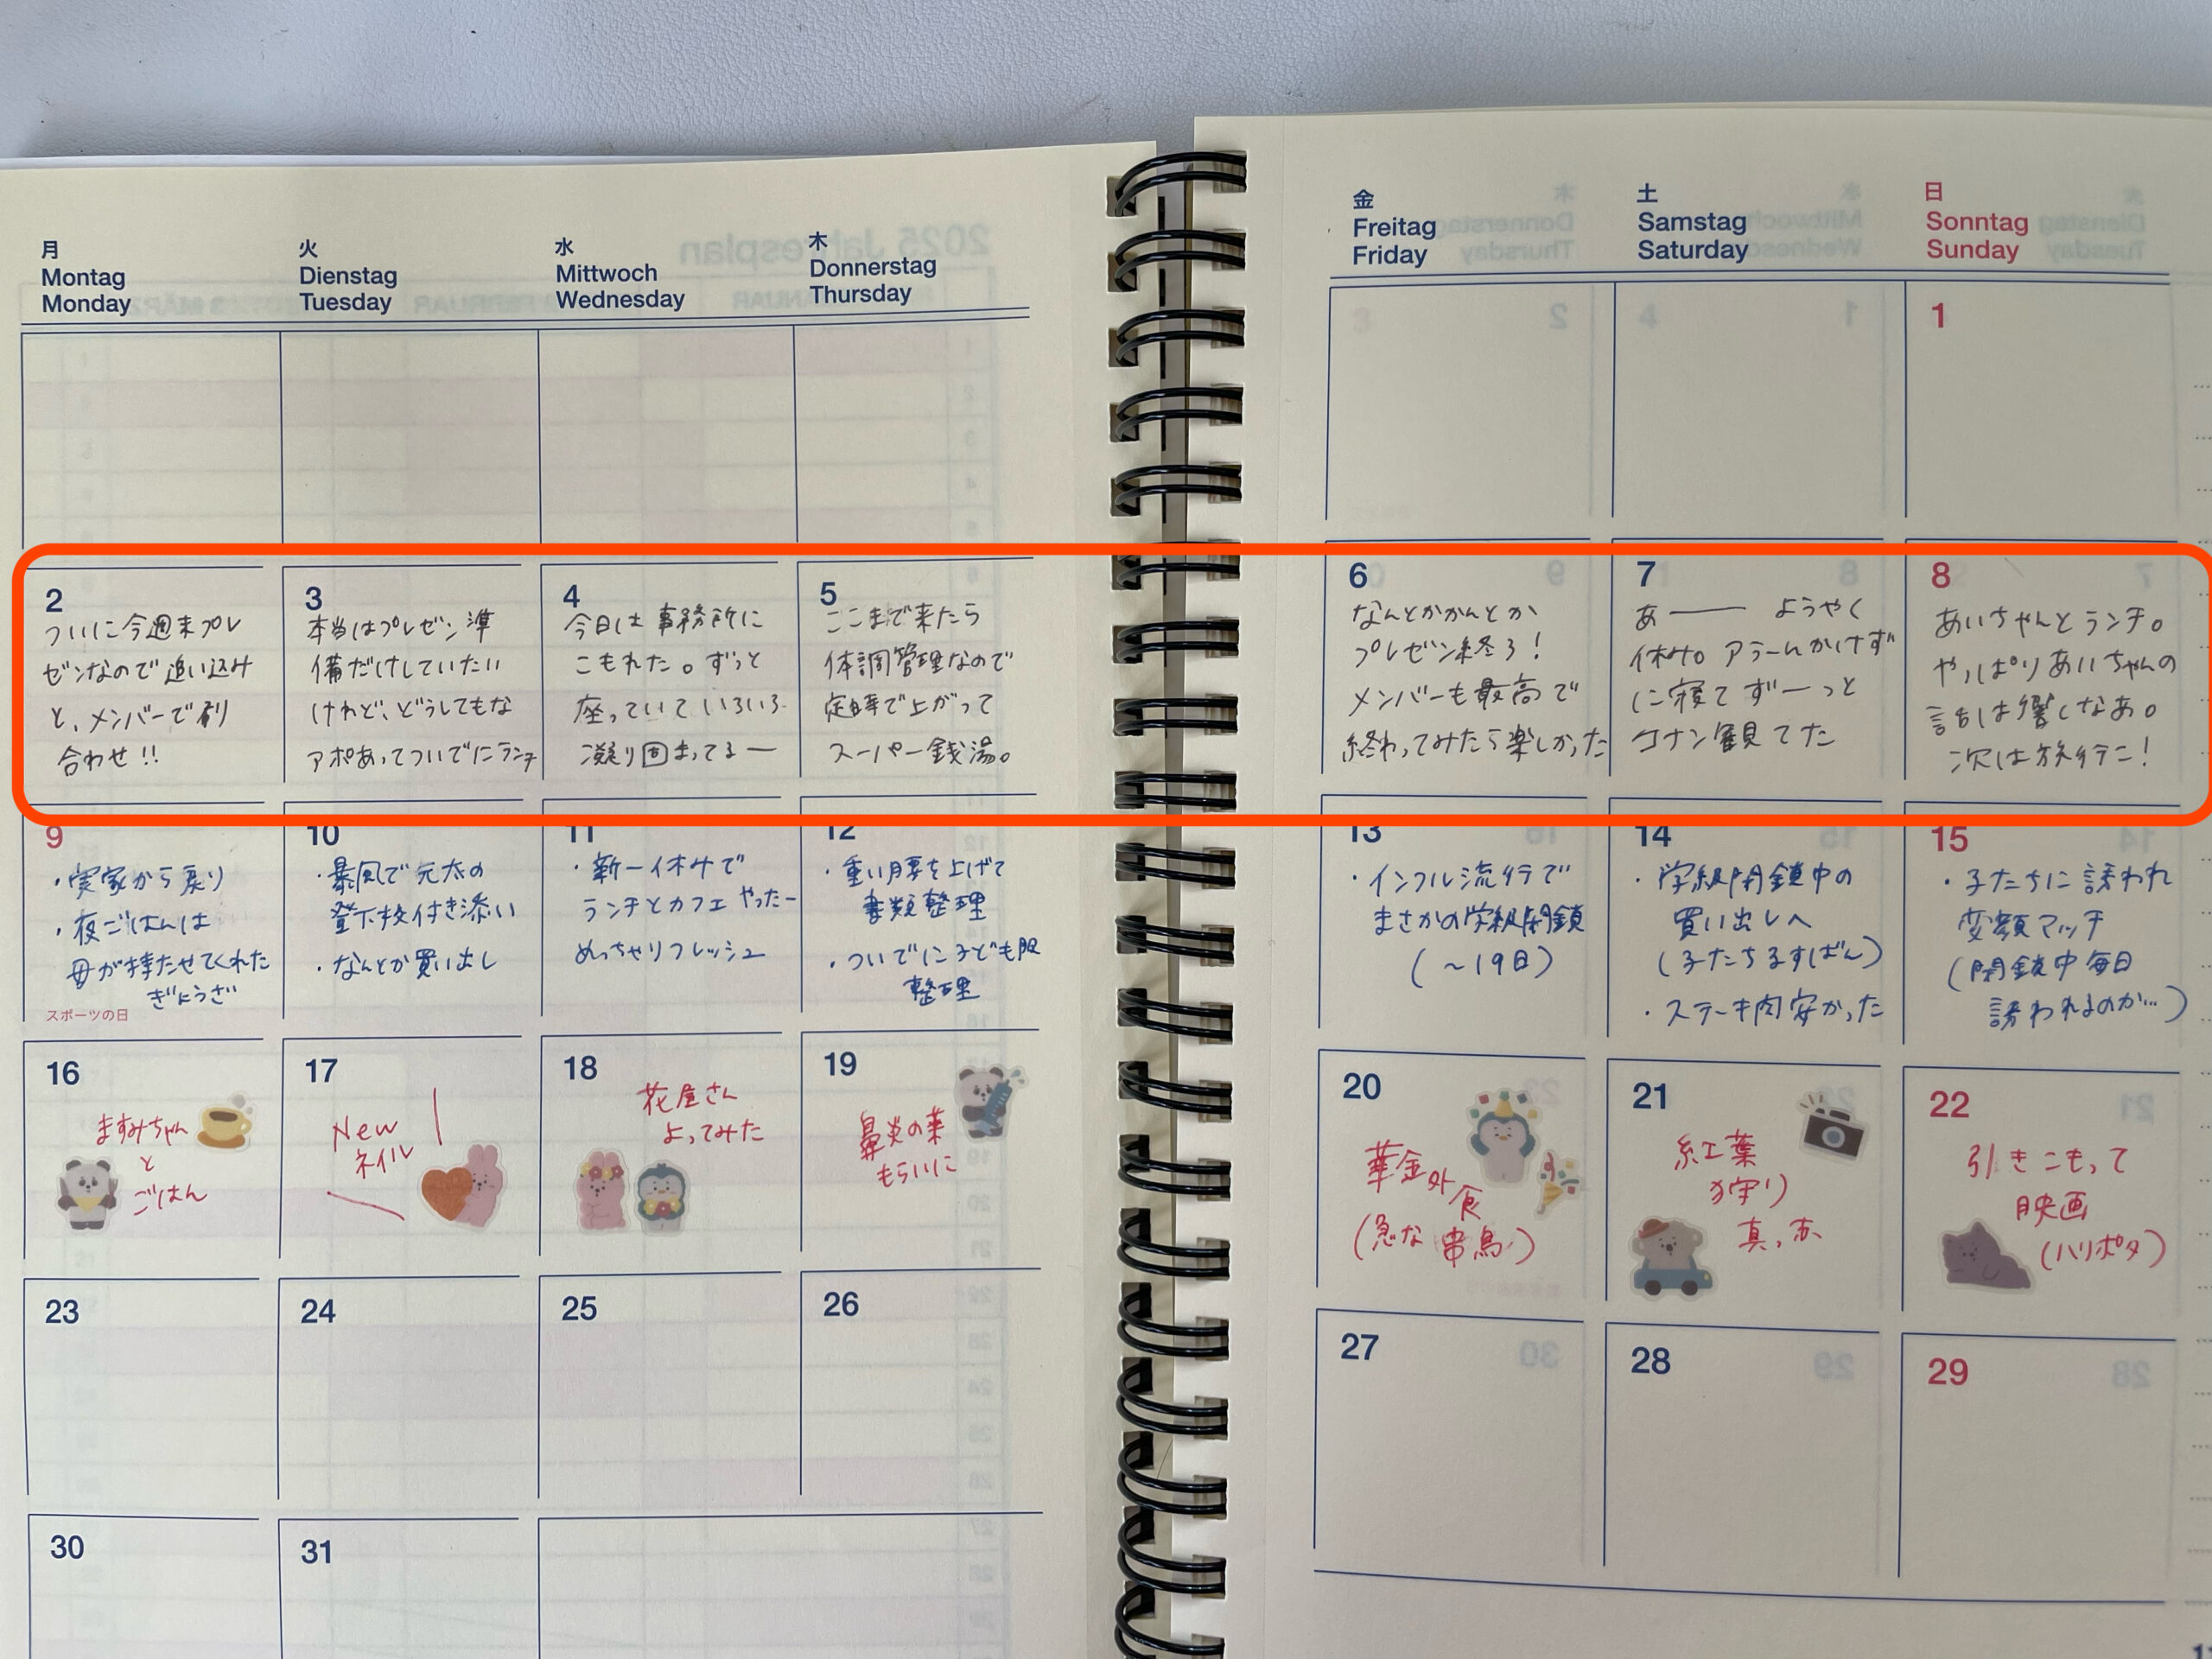 月
Montag
Monday
火
Dienstag
Tuesday
水
Mittwoch
Wednesday
木
Donnerstag
Thursday
金
Freitag
Friday
土
Samstag
Saturday
日
Sonntag
Sunday
1
2
ついに今週末プレ
ゼンなので追い込み
と、メンバーで刷り
合わせ!!
3
本当はプレゼン準
備だけしていたい
けれど、どうしてもな
アポあってついでにランチ
4
今日は事務所に
こもれた。ずっと
座っていていろいろ
凝り固まってるー
5
ここまで来たら
体調管理なので
定時で上がって
スーパー銭湯。
6
なんとかかんとか
プレゼン終了!
メンバーも最高で
終わってみたら楽しかった
7
あー ようやく
休み。アラームかけず
に寝てずーっと
コナン観てた
8
あいちゃんとランチ。
やっぱりあいちゃんの
話は響くなあ。
次は旅行に!
9
・実家から戻り
・夜ごはんは
母が持たせてくれた
ぎょうざ
スポーツの日
10
・暴風で元太の
登下校付き添い
・なんとか買い出し
11
・新一休みで
ランチとカフェ やったー
めっちゃリフレッシュ
12
・重い腰を上げて
書類整理
・ついでに子ども服
整理
13
・インフル流行で
まさかの学級閉鎖
(~19日)
14
・学級閉鎖中の
買い出しへ
(子たちるすばん)
・ステーキ肉安かった
15
・子たちに誘われ
変顔マッチ
(閉鎖中毎日
誘われるのか…)
16
ますみちゃん
と
ごはん
17
New
ネイル
18
花屋さん
よってみた
19
鼻炎の薬
もらいに
20
華金外食
(急な串鳥)
21
紅葉
狩り
真っ赤
22
引きこもって
映画
(ハリポタ)
23
24
25
26
27
28
29
30
31